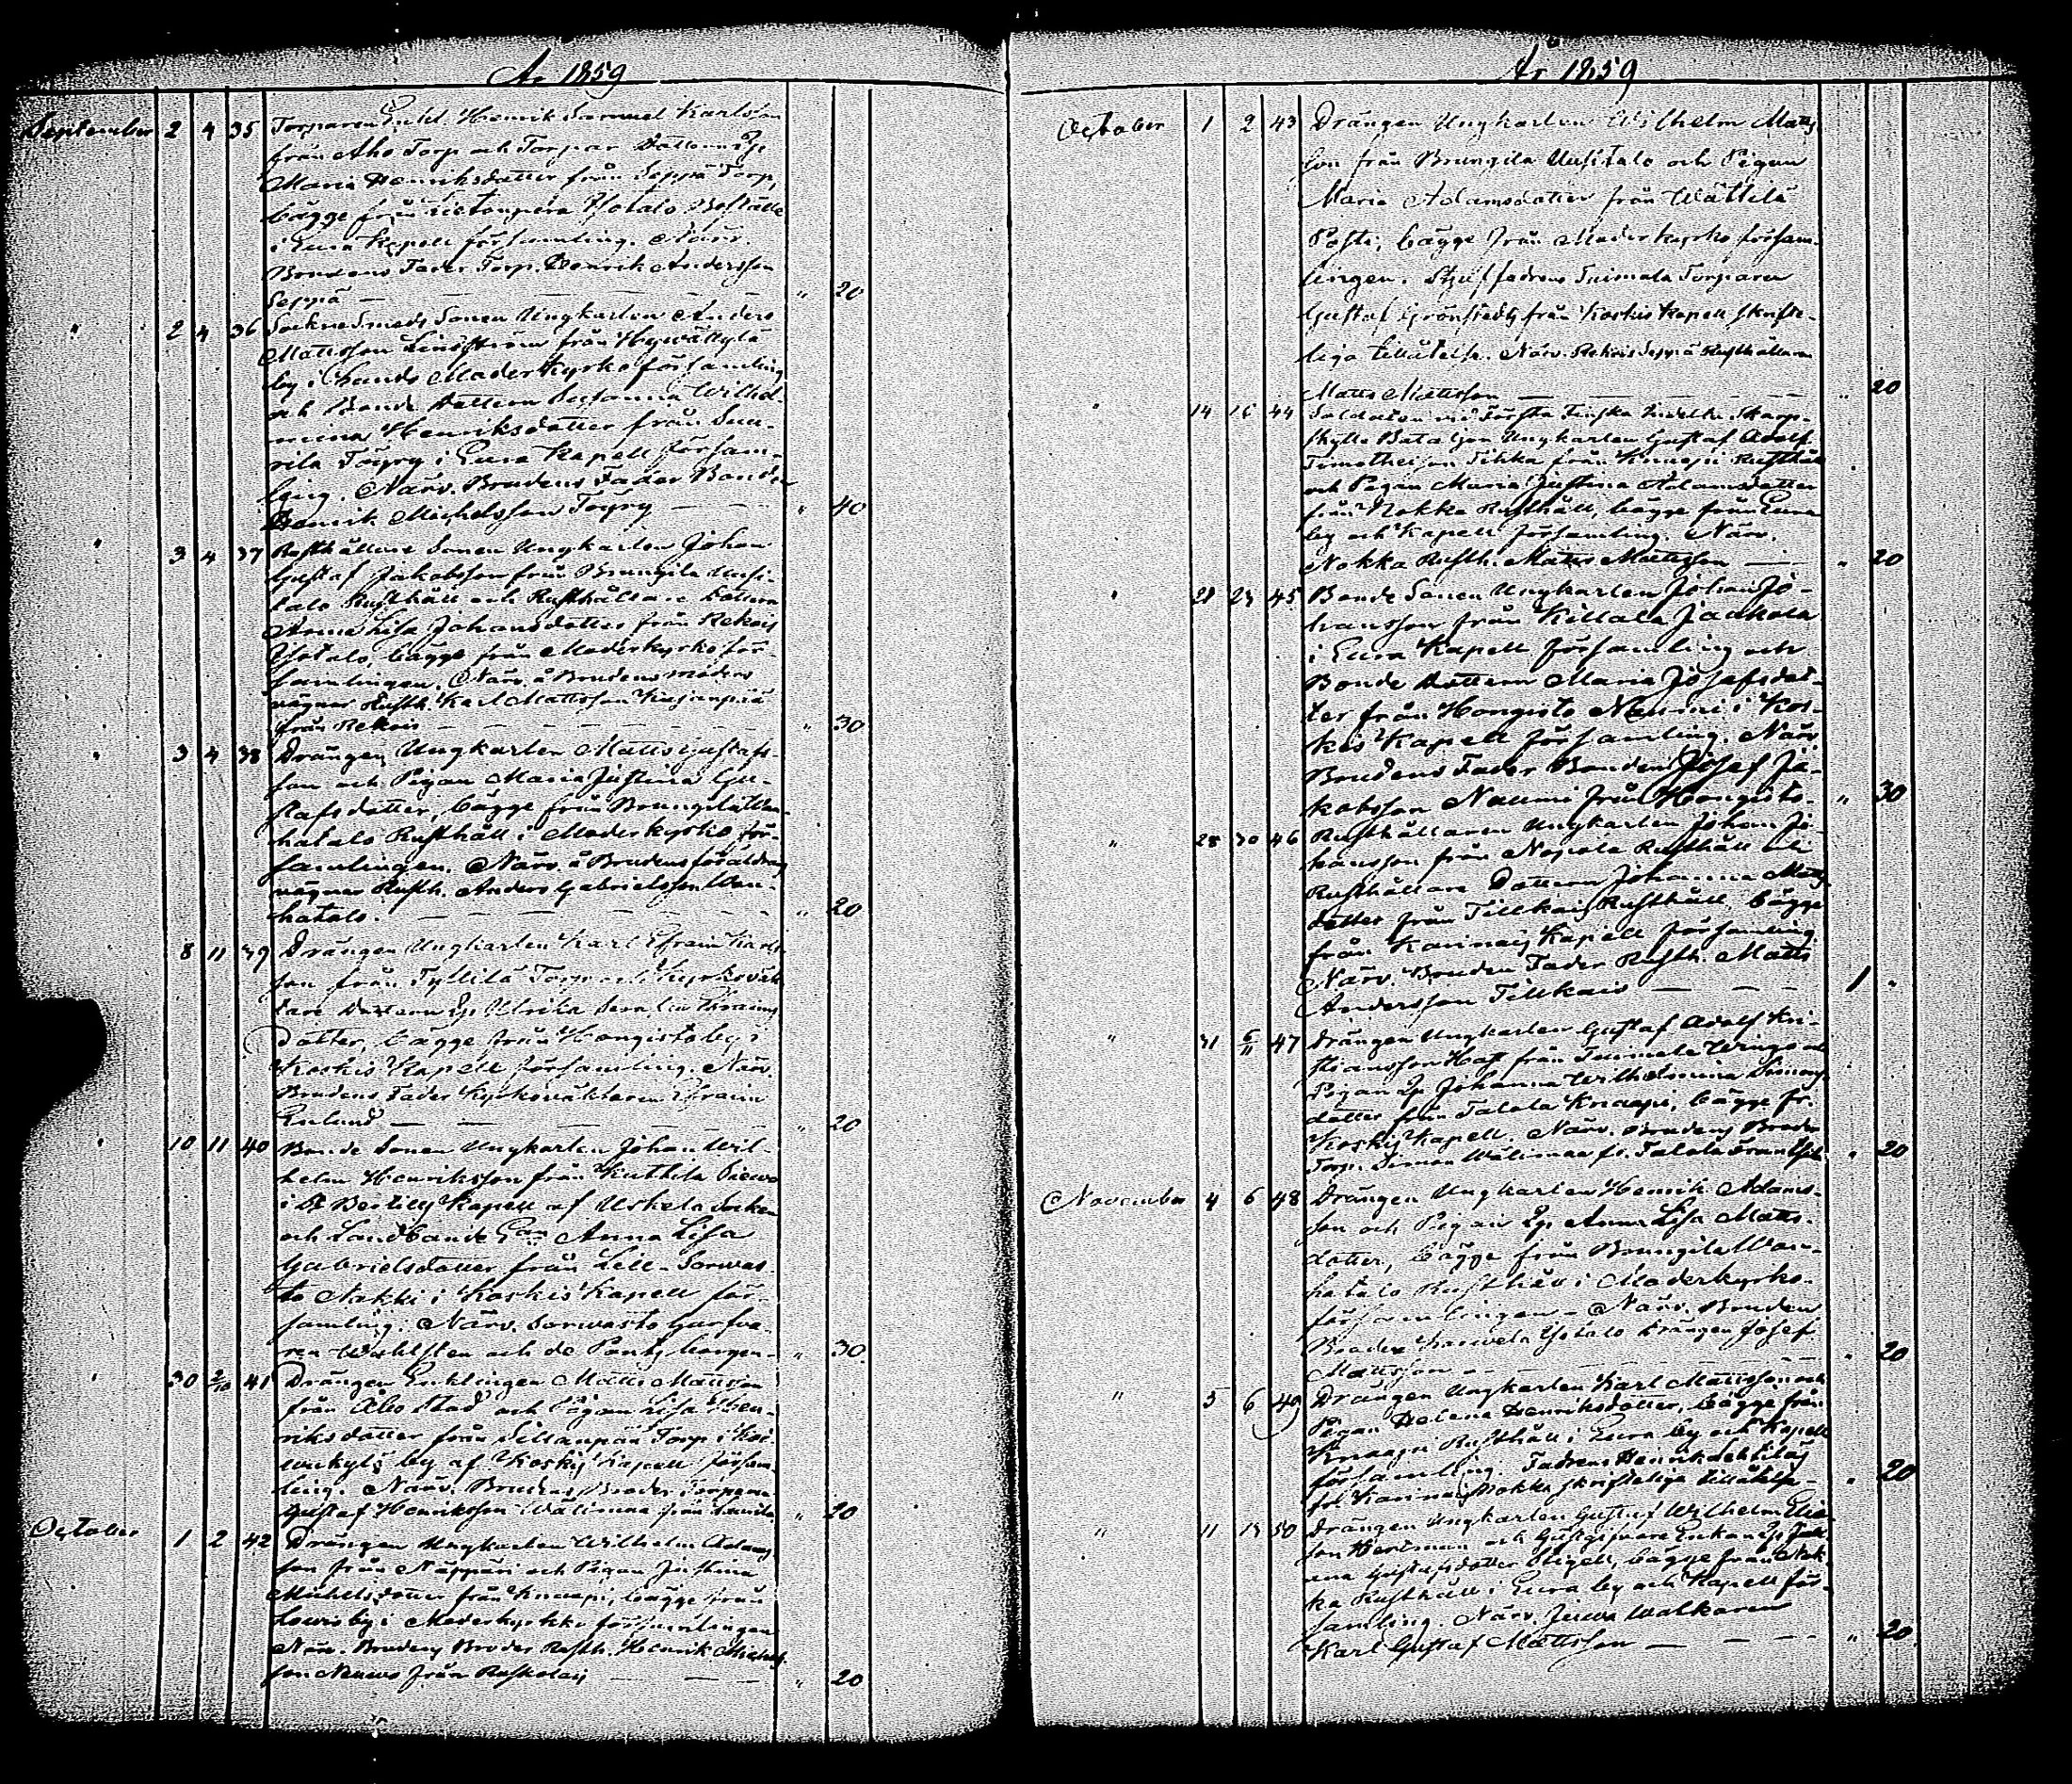 År 1859
September 2 4 35 Torparen Enkl. Henrik Samuel Karlsson
från Aho Torp och Torpar Dottern Pig.
Maria Henriksdotter från Seppä Torp,
bägge från Isotalo Boställe
i Eura Kapell församling. Närv.
Brudens Fader Torp. Henrik Andersson
Seppä — „ 20
" 2 4 36 Sockne Smeds Sonen Ungkarlen Anders
Mattsson Lindström från
by i Lundo Moderkyrko församling
och Bonde Dottern Susanna Wilhel-
mina Henriksdotter från Suu-
rila Töyry i Eura Kapell försam-
ling. Närv. Brudens Fader Bonden
Henrik Michelsson Töyry — „ 40
" 3 4 37 Rusthållare Sonen Ungkarlen Johan
Gustaf Jakobsson från Brungila Uusi-
talo Rusthåll och Rusthållare Dottern
Anna Lisa Johansdotter från Rekois
Isotalo, bägge från Moderkyrko för-
samlingen. Närv. å Brudens moders
vägnar Rusth. Karl Mattsson
från Rekois — „ 30
" 3 4 38 Drängen Ungkarlen Matts Gustafs-
son och Pigan Maria Justina Gu-
stafsdotter, bägge från Brungila Wan-
hatalo Rusthåll i Moderkyrko för-
samlingen. Närv. å Brudens föräldrars
vägnar Rusth. Anders Gabrielsson Wan-
hatalo. — „ 20
8 11 39 Drängen Ungkarlen Karl Efraim Karls-
son från Tyllilä Torp och Kyrkoväk-
tare Dottern Pig. Ulrika Serafia Efraims
dotter, bägge från Hongisto by i
Koskis Kapell församling. Närv.
Brudens Fader Kyrkoväktaren Efraim
Enlund — „ 20
" 10 11 40 Bonde Sonen Ungkarlen Johan Wil-
helm Henriksson från Kuttila
i St Bertils Kapell af Uskela Socken
och Landbonde Enkan Anna Lisa
Gabrielsdotter från Lill-Sorwas-
to Nakki i Koskis Kapell för-
samling. Närv. Sorwasto
ren Wahlsten och de — „ 30
" 30 2/10 41 Drängen Enklingen Matts Mattsson
från Åbo Stad och Pigan Lisa Hen-
riksdotter från Sillanpää Torp i Koi-
wukylä by af Koskis Kapell försam-
ling. Närv. Brudens Broder Torparen
Gustaf Henriksson Wälimaa från „ 20
October 1 2 42 Drängen Ungkarlen Wilhelm Adams-
son från Näppäri och Pigan Justina
Michelsdotter från Knaapi, bägge från
Lowis by i Moderkyrko församlingen
Närv. Brudens Broder Rusth. Henrik Michels-
son från — „ 20
År 1859
October 1 2 43 Drängen Ungkarlen Wilhelm Matts-
son från Brungila Uusitalo och Pigan
Maria Adamsdotter från Wättilä
Posti, bägge från Moderkyrko försam-
lingen. Styffadrens Tuimala Torparen
Gustaf Grönstedts från Koskis Kapell skrift-
liga tillåtelse. Närv. Rekois Seppä Rusthållaren
Matts Mattsson — „ 20
" 14 16 44 Soldaten vid Första Finska Indelta Skarp-
skytte Bataljon Ungkarlen Gustaf Adolf
Timotheisson Tikka från Knaapi Rusthåll
och Pigan Maria Justina Adamsdotter
från Nokka Rusthåll, bägge från Eura
by och Kapell församling. Närv.
Nokka Rusth. Matts Mattsson — „ 20
" 21 23 45 Bonde Sonen Ungkarlen Johan Jo-
hansson från Killala Jaakola
i Eura Kapell församling och
Bonde Dottern Maria Josefsdot-
ter från Hongisto Naumi i Kos-
kis Kapell församling. Närv.
Brudens Fader Bonden Josef Ja-
kobsson Naumi från Hongisto. „ 30
" 28 30 46 Rusthållaren Ungkarlen Johan Jo-
hansson från Rusthåll och
Rusthållare Dottern Johanna Matts-
dotter från Tillkais Rusthåll, bägge
från Karinais Kapell församling
Närv. Brudens Fader Rusth. Matts
Andersson Tillkais — 1 „
" 31 6/11 47 Drängen Ungkarlen Gustaf Adolf Kri-
stiansson från Tuimala och
Pigan Pig. Johanna Wilhelmina Simons-
dotter från Talola Knaapi, bägge fr.
Koskis Kapell. Närv. Brudens Broder
Torp. Simon Wälimaa fr. Talola „ 20
November 4 6 48 Drängen Ungkarlen Henrik Adams-
son och Pigan Pig. Anna Lisa Matts-
dotter, bägge från Brungila Wan-
hatalo Rusthåll i Moderkyrko-
församlingen — Närv. Brudens
Broder Isotalo Drängen Josef
Mattsson — „ 20
" 5 6 49 Drängen Ungkarlen Karl Mattsson och
Pigan Helena Henriksdotter, bägge från
Knaapi Rusthåll i Eura by och Kapell
församling. Fadrens Henrik
fr. Karinais Nokka skriftliga tillåtelse — „ 20
" 11 13 50 Drängen Ungkarlen Gustaf Wilhelm Elia-
son Hartman och Gästgifvare Enkan
Gustafsdotter bägge från Nok-
ka Rusthåll i Eura by och Kapell för-
samling. Närv.
Karl Gustaf Mattsson — „ 20